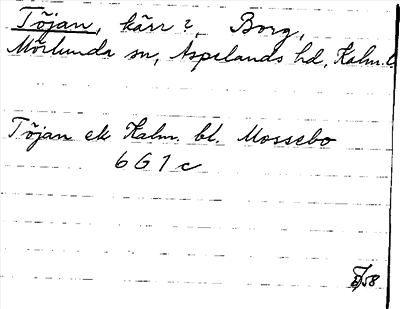 Töjan, kärr?, Borg,
Mörlunda sn, Aspelands hd, Kalm. l.
Töjan ek Kalm. bl. Mossebo
6G1c
5/58